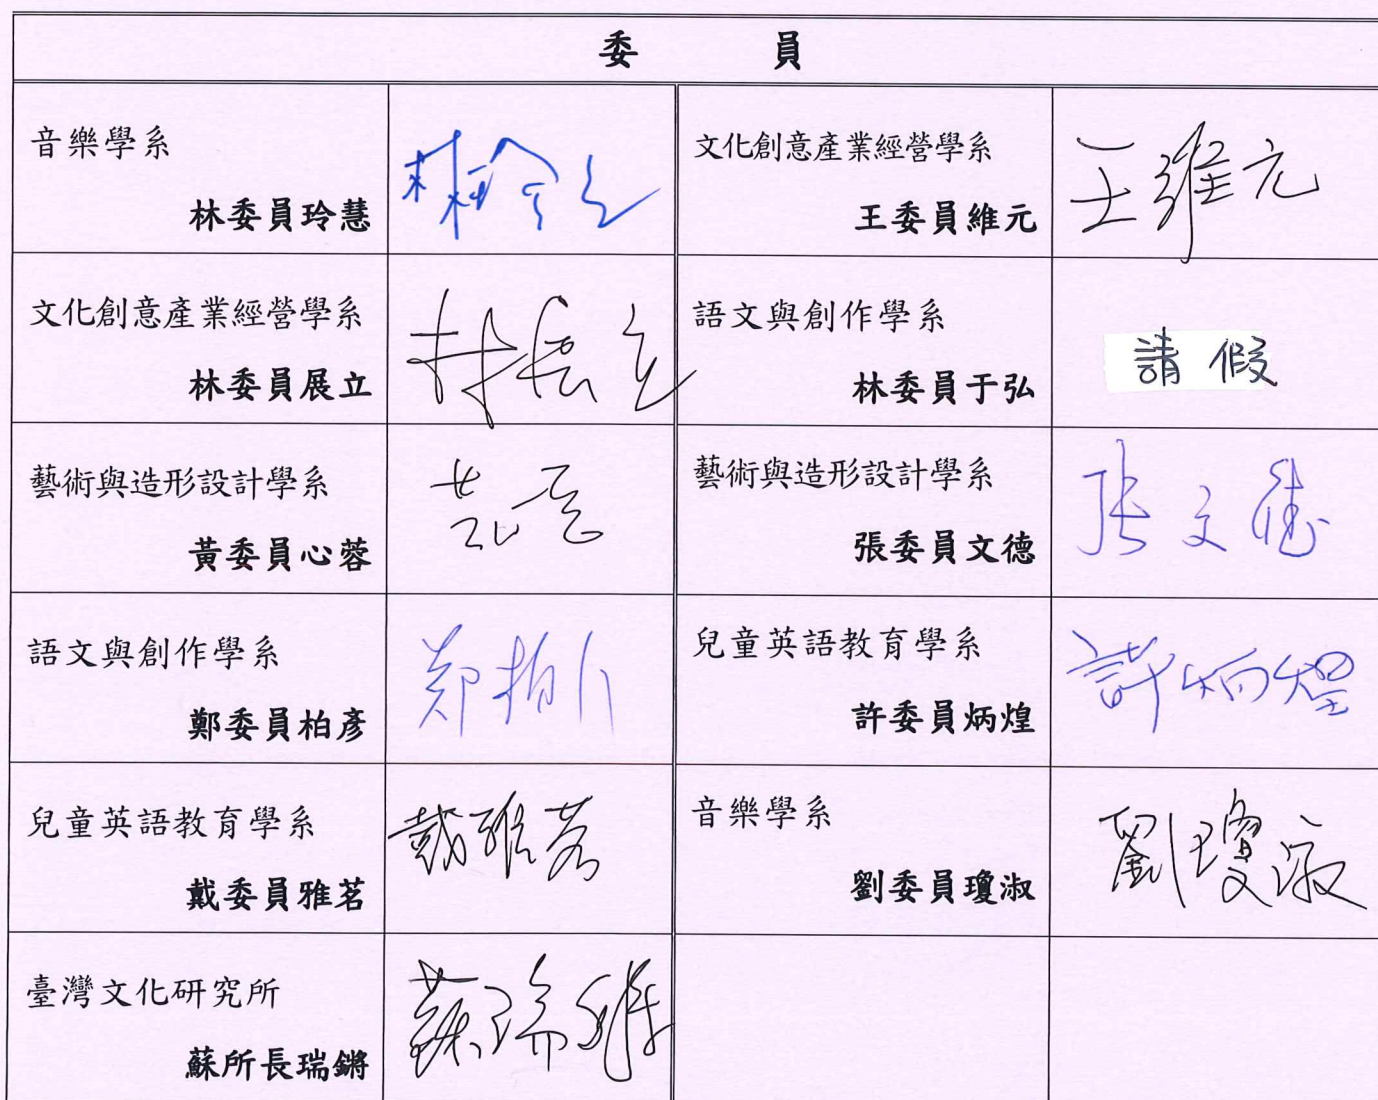 委員
音樂學系
林委員玲慧
文化創意產業經營學系
王委員維元
王維元
文化創意產業經營學系
林委員展立
林展立
語文與創作學系
林委員于弘
請假
藝術與造形設計學系
黃委員心蓉
藝術與造形設計學系
張委員文德
張文德
語文與創作學系
鄭委員柏彥
兒童英語教育學系
許委員炳煌
許炳煌
兒童英語教育學系
戴委員雅茗
戴雅茗
音樂學系
劉委員瓊淑
劉瓊淑
臺灣文化研究所
蘇所長瑞鏘
蘇瑞鏘